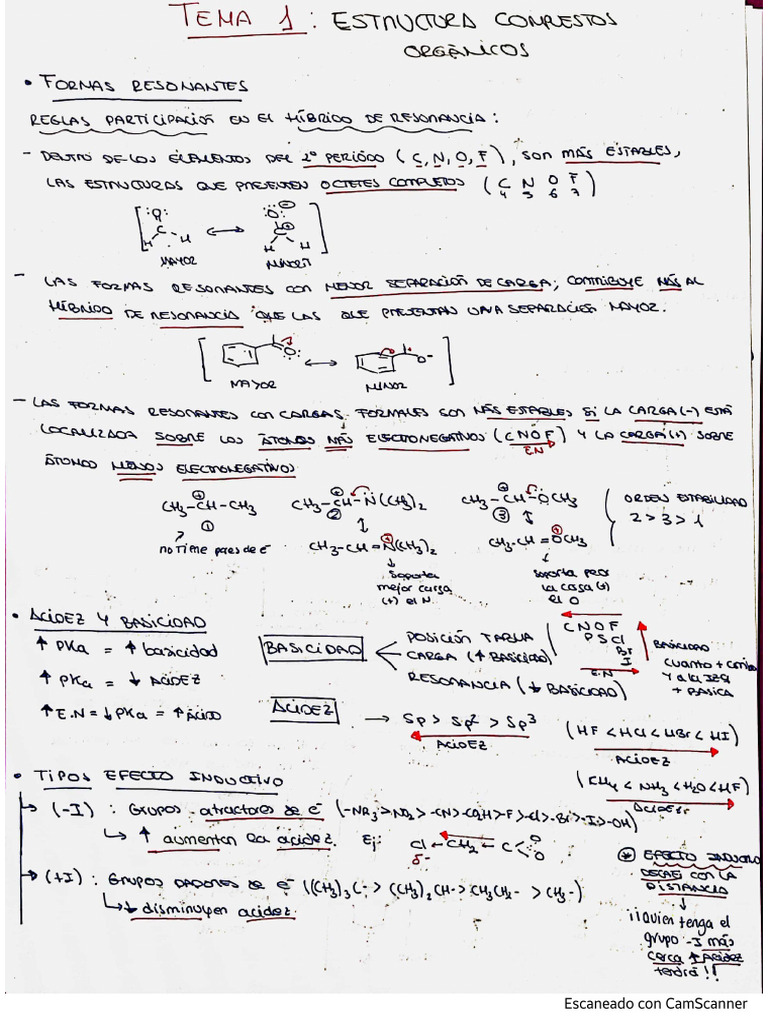 TEMA 1 : ESTRUCTURA COMPUESTOS
ORGÁNICOS
• FORMAS RESONANTES
REGLAS PARTICIPACIÓN EN EL HÍBRIDO DE RESONANCIA :
- DENTRO DE LOS ELEMENTOS DEL 2º PERÍODO (C, N, O, F), SON MÁS ESTABLES,
LAS ESTRUCTURAS QUE PRESENTEN OCTETES COMPLETOS (C N O F)
4 5 6 7
MAYOR
- LAS FORMAS RESONANTES CON MENOR SEPARACIÓN DE CARGA; CONTRIBUYE MÁS AL
HÍBRIDO DE RESONANCIA QUE LAS QUE PRESENTAN UNA SEPARACIÓN MAYOR.
MAYOR MINOR
- LAS FORMAS RESONANTES CON CARGAS FORMALES SON MÁS ESTABLES SI LA CARGA(-) ESTÁ
LOCALIZADA SOBRE LOS ÁTOMOS MÁS ELECTRONEGATIVOS (C N O F) Y LA CARGA(+) SOBRE
EN
ÁTOMOS MENOS ELECTRONEGATIVOS
CH3-CH-CH3 CH3-CH-N(CH3)2 CH3-CH-OCH3
1 2 3
ORDEN ESTABILIDAD
2 > 3 > 1
no tiene pares de e- CH3-CH=N(CH3)2 CH3-CH=OCH3
Soporta
mejor carga
(+) el N.
soporta peor
la carga (+)
el O
• ACIDEZ Y BASICIDAD
↑ PKa = ↑ basicidad
↑ PKa = ↓ ACIDEZ
↑ E.N = ↓ PKa = ↑ ÁCIDO
BASICIDAD
POSICIÓN TABLA
CARGA (↑ BASICIDAD)
RESONANCIA (↓ BASICIDAD)
C N O F
P S Cl
Br
I
E.N
BASICIDAD
+ BASICA
ACIDEZ → Sp > Sp2 > Sp3
ACIDEZ
(HF < HCl < HBr < HI)
ACIDEZ
(CH4 < NH3 < H2O < HF)
ACIDEZ
• TIPOS EFECTO INDUCTIVO
↳ (-I) : Grupos atractores de e- (-NR3>NO2>-CN>-CO2H>-F>-Cl>-Br>-I>-OH)
↳ ↑ aumentan la acidez. Ej: Cl←CH2←C O O
δ-
→ (+I) : Grupos dadores de e- ((CH3)3C-> (CH3)2CH-> CH3CH2- > CH3-)
↳ ↓ disminuyen acidez.
* EFECTO INDUCTIVO
DECAE CON LA
DISTANCIA
↓
¡¡Quien tenga el
grupo -I más
cerca ↑ Acidez
tendrá!!
Escaneado con CamScanner